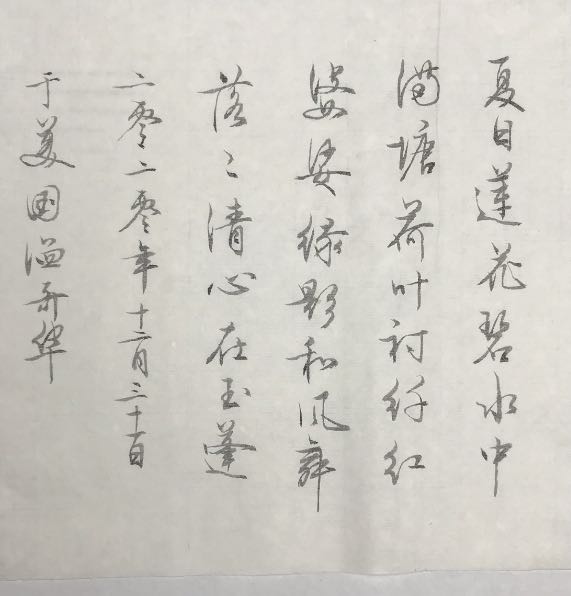 夏日莲花碧水中
满塘荷叶衬纤红
婆娑绿影和风舞
落々清心在玉蓬
二零二零年十二月三十一日
于美国温哥华